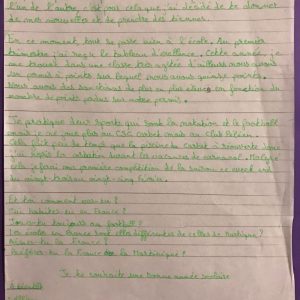 l'un de l'autre, c'est pour cela que j'ai décidé de te donner
de mes nouvelles et de prendre des tiennes.
En ce moment, tout se passe bien à l'école. Au premier
trimestre, j'ai reçu le tableau d'excellence. Cette année, je
me trouve dans une classe très agitée d'ailleurs nous avons
un permis à points sur lequel nous avons quinze points.
Nous avons des sanctions de plus en plus en fonction du
nombre de points perdus sur notre permis.
Je pratique deux sports qui sont la natation et le football
mais je ne joue plus au CSC carbet mais au Club Péléen.
Cela fait peu de temps que la piscine du carbet a réouverte donc
j'ai repris la natation durant les vacances de carnaval. Malgré
cela je ferai ma première compétition de la saison ce week end
du vingt-trois au vingt-cinq
Et toi comment vas-tu ?
Où habites-tu en France ?
Joues-tu toujours au football ?
Les écoles en France sont elles différentes de celles de Martinique ?
Aimes-tu la France ?
Préfères-tu la France ou la Martinique ?
Je te souhaite une bonne année scolaire
A bientôt